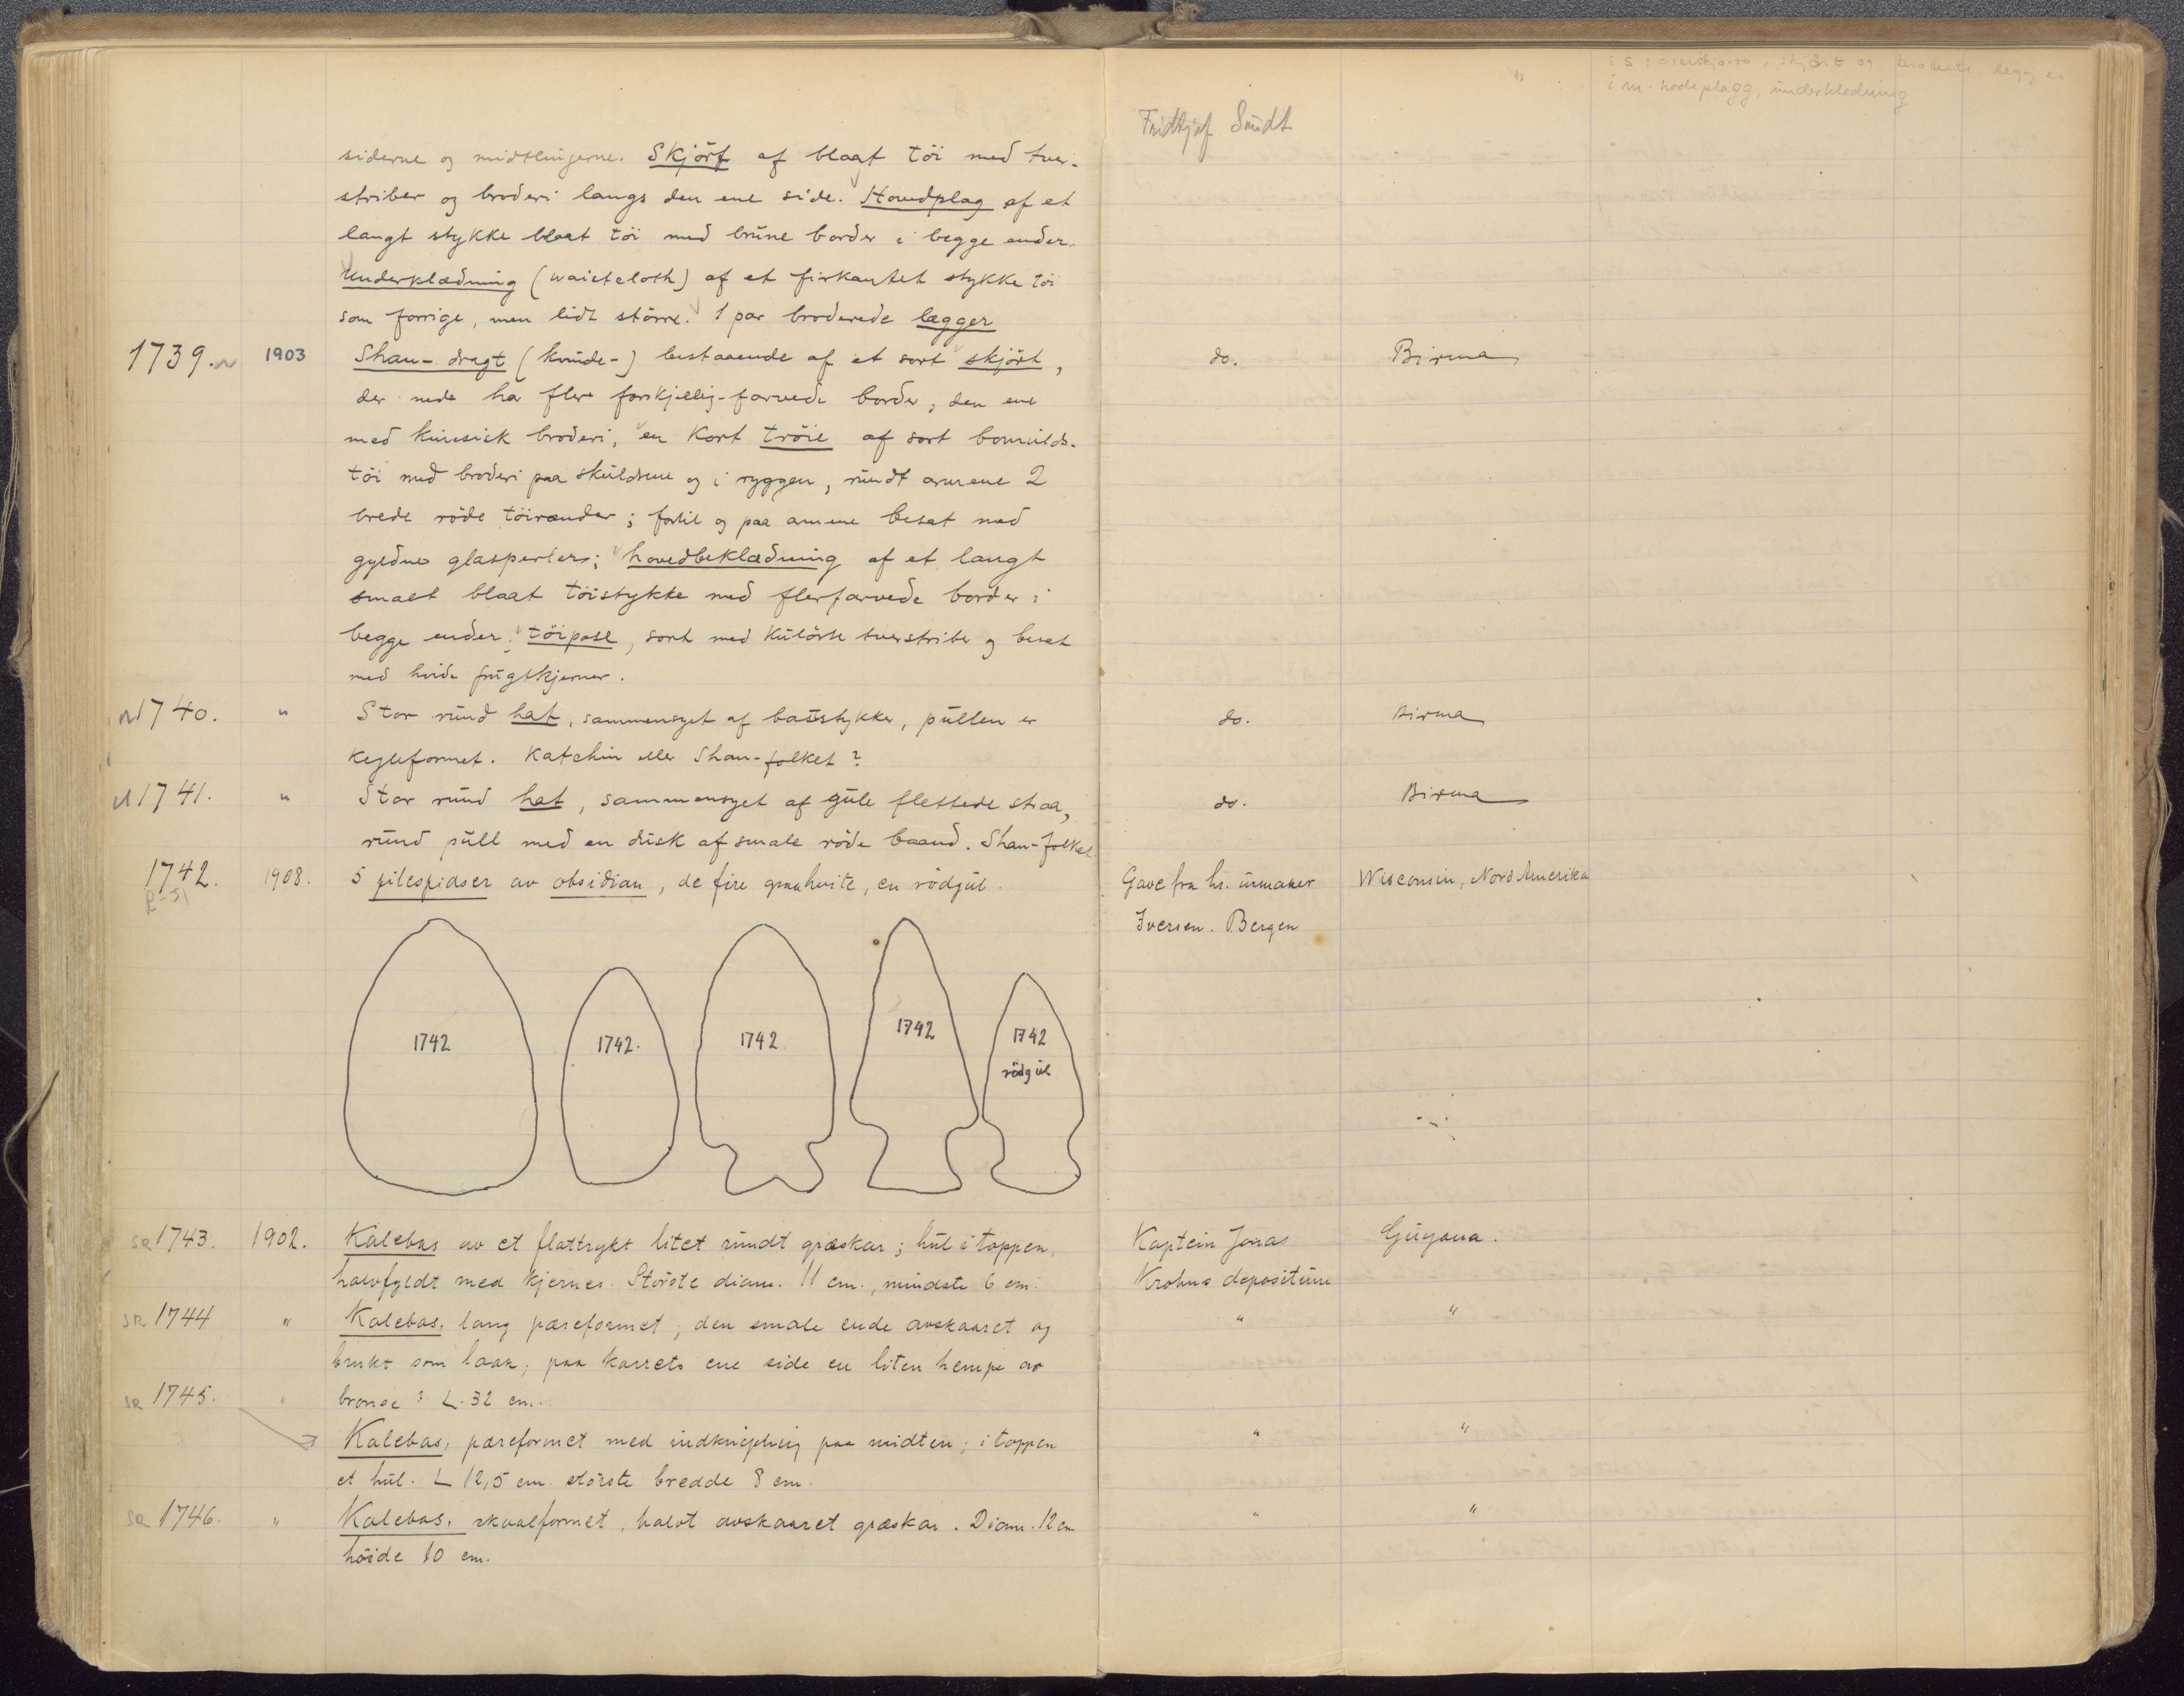 i s : overskjorta, skjört og broderte legger
i m. hodeplagg, underkledning
Fridtjof Smidt "
siderne og midtlinjerne. Skjörf af blaat töi med tver-
striber og broderi langs den ene side. Hovedplag af et
langt stykke blaat töi med brune border i begge ender.
Underklædning (waistcloth) af et firkantet stykke töi
som forrige, men lidt större. 1 par broderede lægger
1739. N 1903 Shan-dragt (kvinde-) bestaaende af et sort skjört, do. Birma
der nede har flere forskjellig-farvede border, den ene
med kinesisk broderi, en kort tröie af sort bomulds-
töi med broderi paa skuldrene og i ryggen, rundt armene 2
brede röde töirander; fortil og paa armene besat med
gyldne glasperler; hovedbeklædning af et langt
smalt blaat töistykke med flerfarvede border i
begge ender; töipose, sort med kulörte tverstriber og besat
med hvide frugtkjerner.
N 1740. " Stor rund hat, sammensyet af baststykker, pullen er do. Birma
kegleformet. Katchin eller Shan-folket?
N 1741. " Stor rund hat, sammensyet af gule flettede straa, do. Birma
rund pull med en dusk af smale röde baand. Shan-folket.
1742. 1908. 5 pilespidser av obsidian, de fire graahvite, en rödgul. Gave fra hr. urmaker Wisconsin, Nord Amerika
R-51 Iversen. Bergen
1742 1742. 1742 1742 1742
rödgul
SR 1743. 1902. Kalebas av et flattrykt litet rundt græskar; hul i toppen, Kaptein Jonas Guyana.
halvfyldt med kjerner. Störste diam. 11 cm., mindste 6 cm. Krohns depositum
SR 1744 " Kalebas, lang pæreformet; den smale ende avskaaret og " "
brukt som laak; paa karrets ene side en liten hempe av
SR 1745. " bronse? L. 32 cm.
Kalebas, pæreformet med indknipning paa midten; i toppen " "
et hul. L 12,5 cm. störste bredde 8 cm.
SR 1746. " Kalebas, skaalformet, halvt avskaaret græskar. Diam. 12 cm " "
höide 10 cm.